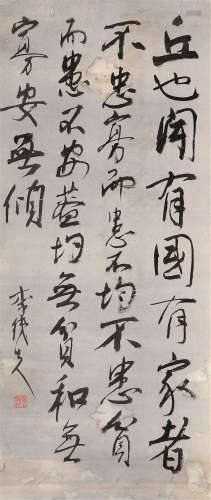 丘也聞有國有家者
不患寡而患不均不患貧
而患不安蓋均無貧和無
寡安無傾
李